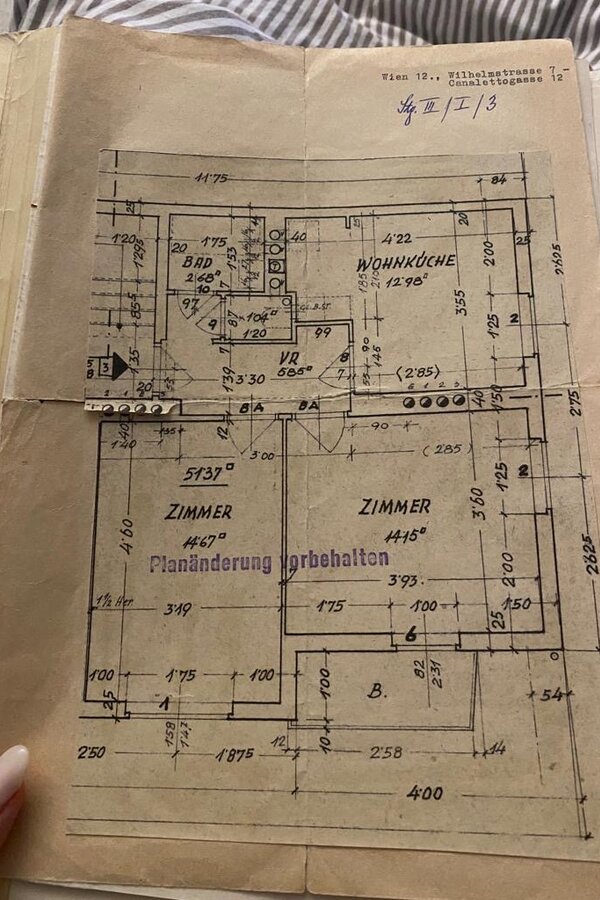 Wien 12., Wilhelmstrasse 7 -
Canalettogasse 12
Stg. III / I / 3
11'75
84
25
1'20
20
1'75
40
4'22
20
25
BAD
2'68□
1'53
WOHNKÜCHE
12'98□
2'00
2'625
1'295
10
97
855
3'55
1'25
2
87
1'04□
1'20
99
VR
5'85□
90
1'46
1'35
3
20
1'39
3'30
7
8
(2'85)
2'75
BA
BA
6 1 2 3
40
1'50
12
1'40
3'00
90
(285)
51'37□
ZIMMER
14'67□
ZIMMER
14'15□
1'25
2
3'60
4'60
Planänderung vorbehalten
2'00
2'625
3'93
1½ Her
3'19
1'75
1'00
1'50
6
25
1'00
1'75
1'00
1'00
B.
82
2'31
25
1
54
1'58
1'47
12
10
2'50
1'875
2'58
14
4'00